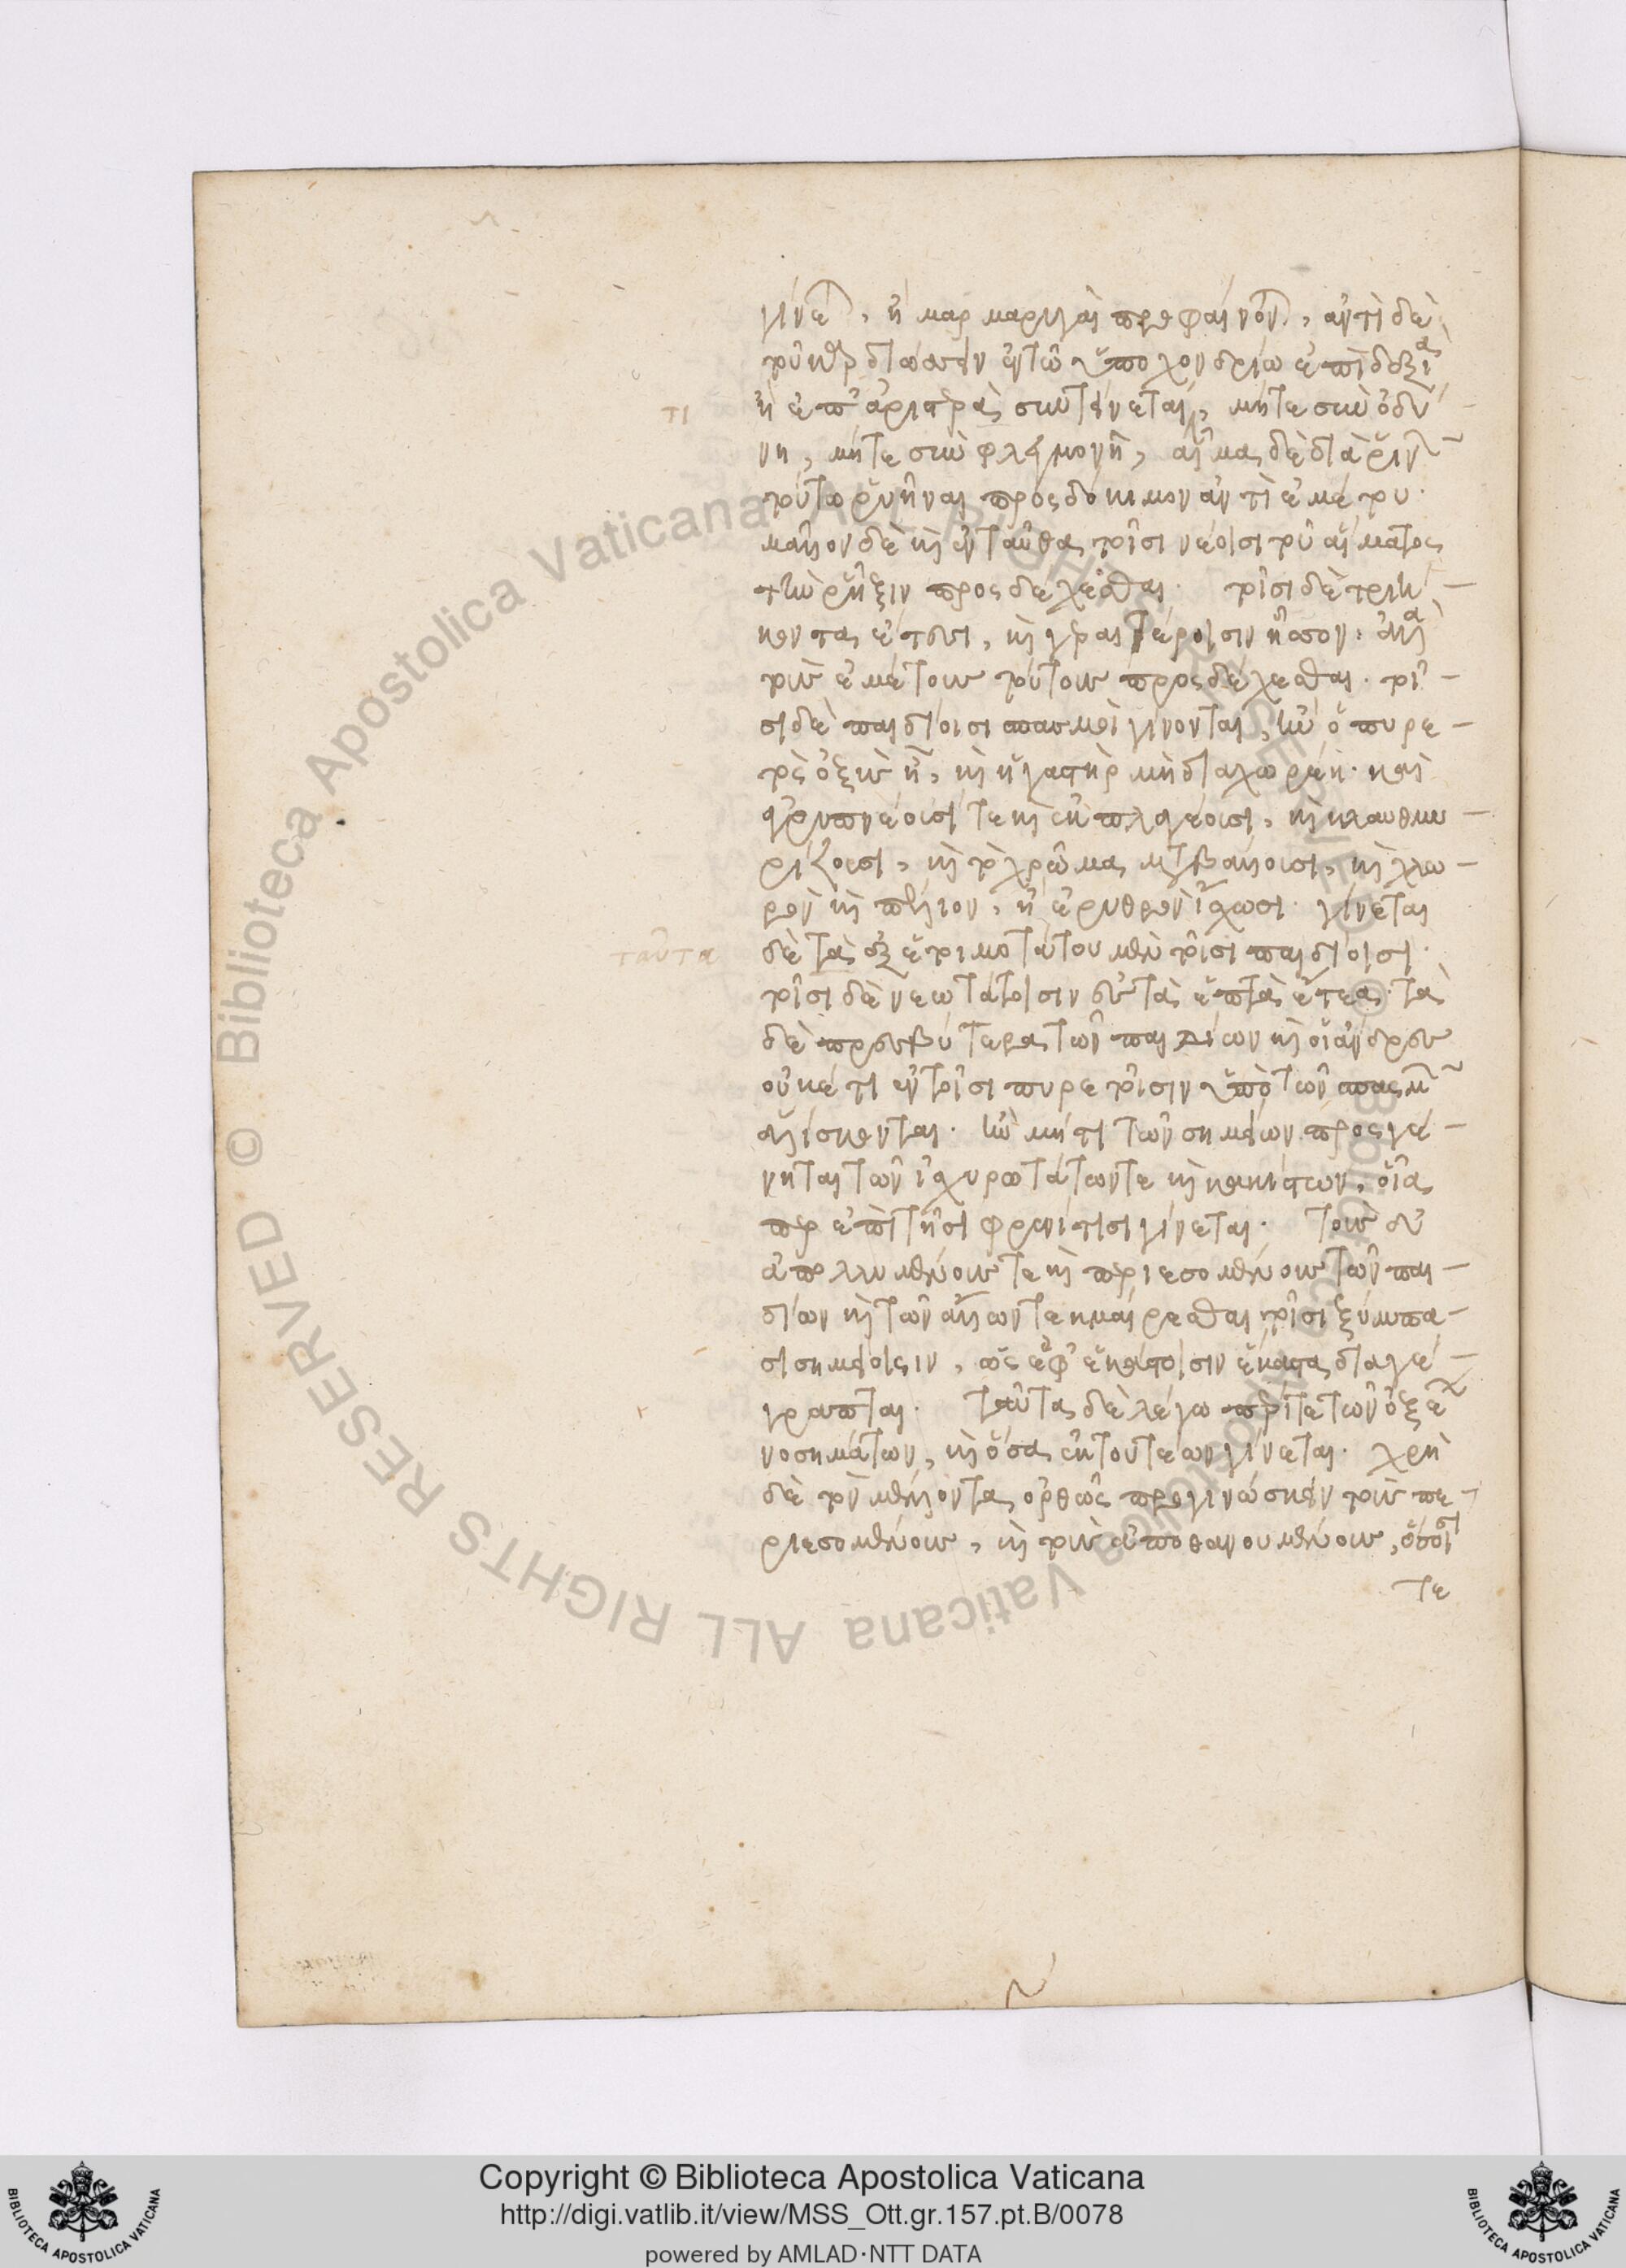 γίνεται, ἢ μαρμαρυγαὶ προφαίνονται, ἀντὶ δὲ
τοῦ καρδιώσσειν ἐν τῷ ὑποχονδρίῳ ἐπὶ δεξιὰ
τι
ἢ ἐπ' ἀριστερὰ συντείνεται, μήτε σὺν ὀδύ-
νη, μήτε σὺν φλεγμονῇ, αἷμα δὲ διὰ ῥινῶν
τούτῳ ῥυῆναι προσδόκιμον ἀντὶ ἐμέτου.
μᾶλλον δὲ καὶ ἐνταῦθα τοῖσι νέοισι τοῦ αἵματος
τὴν ῥῆξιν προσδέχεσθαι. τοῖσι δὲ τριη-
κονταετέσι, καὶ γεραιτέροισιν ἧσσον. ἀλλὰ
τοὺς ἐμέτους τούτοις προσδέχεσθαι. τοῖ-
σι δὲ παιδίοισι σπασμοὶ γίνονται, ἢν ὁ πυρε-
τὸς ὀξὺς ᾖ, καὶ ἡ γαστὴρ μὴ διαχωρέῃ. καὶ
ἀγρυπνέωσί τε καὶ ἐκπλαγέωσι, καὶ κλαυθμυ-
ρίζωσι, καὶ τὸ χρῶμα μεταβάλλωσι, καὶ χλω-
ρὸν καὶ πέλιον, ἢ ἐρυθρὸν ἴσχωσι. γίνεται
ταῦτα
δὲ τὰ ἐξ ἑτοιμοτάτου μὲν τοῖσι παιδίοισι.
τοῖσι δὲ νεωτάτοισιν ἐς τὰ ἑπτὰ ἔτεα. τὰ
δὲ πρεσβύτερα τῶν παιδίων καὶ οἱ ἄνδρες
οὐκέτι ἐν τοῖσι πυρετοῖσιν ὑπὸ τῶν σπασμῶν
ἁλίσκονται. ἢν μή τι τῶν σημείων προσγέ-
νηται τῶν ἰσχυροτάτων τε καὶ κακίστων, οἷα
περ ἐπὶ τῇσι φρενίτισι γίνεται. τοὺς δὲ
ἀπολλυμένους τε καὶ περιεσομένους τῶν παι-
δίων καὶ τῶν ἄλλων τεκμαίρεσθαι τοῖσι ξύμπα-
σι σημείοισιν, ὡς ἐφ' ἑκάστοισιν ἕκαστα διαγέ-
γραπται. ταῦτα δὲ λέγω περί τε τῶν ὀξέων
νοσημάτων, καὶ ὅσα ἐκ τουτέων γίνεται. χρὴ
δὲ τὸν μέλλοντα ὀρθῶς προγινώσκειν τοὺς πε-
ριεσομένους, καὶ τοὺς ἀποθανουμένους, ὁκόσοι
τε
Copyright © Biblioteca Apostolica Vaticana
http://digi.vatlib.it/view/MSS_Ott.gr.157.pt.B/0078
powered by AMLAD·NTT DATA
BIBLIOTECA APOSTOLICA VATICANA
BIBLIOTECA APOSTOLICA VATICANA
© Biblioteca Apostolica Vaticana ALL RIGHTS RESERVED
© Biblioteca Apostolica Vaticana ALL RIGHTS RESERVED